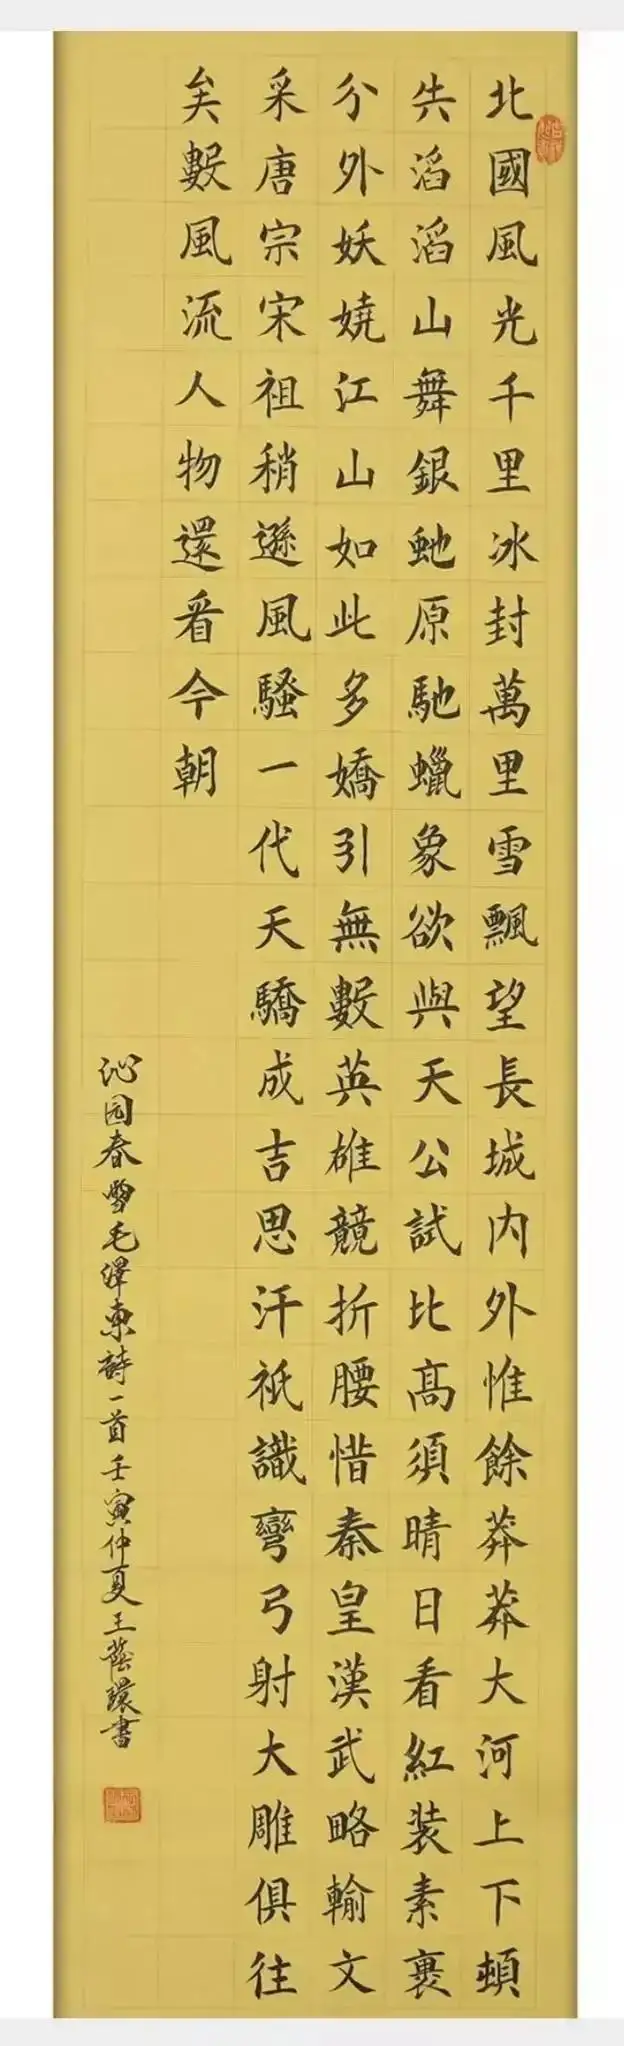 北國風光千里冰封萬里雪飄望長城內外惟餘莽莽大河上下頓
失滔滔山舞銀虵原馳蠟象欲與天公試比高須晴日看紅装素裹
分外妖嬈江山如此多嬌引無數英雄競折腰惜秦皇漢武略輸文
采唐宗宋祖稍遜風騷一代天驕成吉思汗祇識彎弓射大雕俱往
矣數風流人物還看今朝
沁园春雪毛澤東詩一首壬寅仲夏王蔭環書